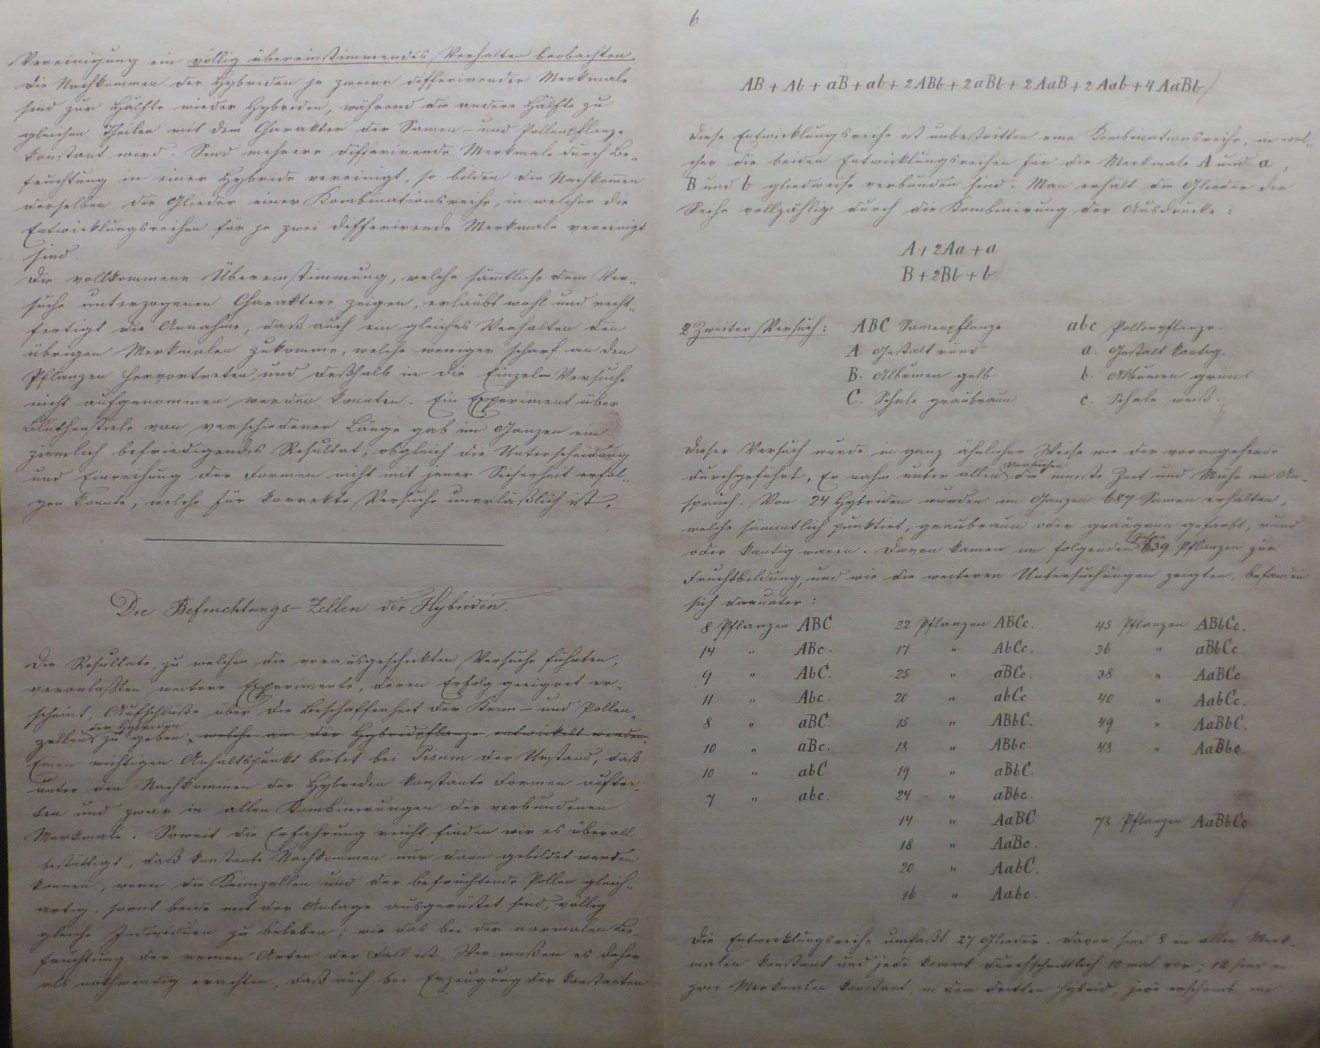 Vereinigung ein völlig übereinstimmendes Verhalten beobachten.
Die Nachkommen der Hybriden je zweier differirender Merkmale
sind zur Hälfte wieder Hybriden, während die andere Hälfte zu
gleichen Theilen mit dem Charakter der Samen- und Pollenpflanze
konstant wird. Sind mehrere differirende Merkmale durch Be-
fruchtung in einer Hybride vereinigt, so bilden die Nachkommen
derselben die Glieder einer Kombinationsreihe, in welcher die
Entwicklungsreihen für je zwei differirende Merkmale vereinigt
sind.
Die vollkommene Übereinstimmung, welche sämtliche dem Ver-
suche unterzogenen Charaktere zeigen, erlaubt wohl und recht-
fertigt die Annahme, daß auch ein gleiches Verhalten den
übrigen Merkmalen zukomme, welche weniger scharf an den
Pflanzen hervortreten, und deßhalb in die Einzeln-Versuche
nicht aufgenommen werden konnten. Ein Experiment über
Blüthenstiele von verschiedener Länge gab im Ganzen ein
ziemlich befriedigendes Resultat, obgleich die Unterscheidung
und Einreihung der Formen nicht mit jener Sicherheit erfol-
gen konnte, welche für korrekte Versuche unerläßlich ist.
Die Befruchtungs-Zellen der Hybriden.
Die Resultate, zu welchen die vorausgeschickten Versuche führten,
veranlaßten weitere Experimente, deren Erfolg geeignet er-
scheint, Aufschlüße über die Beschaffenheit der Keim- und Pollen-
der Hybriden
zellen zu geben, welche an der Hybridpflanze entwickelt werden.
Einen wichtigen Anhaltspunkt bietet bei Pisum der Umstand, daß
unter den Nachkommen der Hybriden konstante Formen auftre-
ten und zwar in allen Kombinirungen der verbundenen
Merkmale. Soweit die Erfahrung reicht, finden wir es überall
bestättigt, daß konstante Nachkommen nur dann gebildet werden
können, wenn die Keimzellen und der befruchtende Pollen gleich-
artig, somit beide mit der Anlage ausgerüstet sind, völlig
gleiche Individuen zu beleben; wie das bei der normalen Be-
fruchtung der reinen Arten der Fall ist. Wir müßen es daher
als nothwendig erachten, daß auch bei Erzeugung der konstanten
6
AB + Ab + aB + ab + 2ABb + 2aBb + 2AaB + 2Aab + 4AaBb
Diese Entwicklungsreihe ist unbestritten eine Kombinationsreihe, in wel-
cher die beiden Entwicklungsreihen für die Merkmale A und a,
B und b gliedweise verbunden sind. Man erhält die Glieder der
Reihe vollzählig durch die Kombinirung der Ausdrücke:
A + 2Aa + a
B + 2Bb + b
2 Zweiter Versuch: ABC Samenpflanze abc Pollenpflanze.
A. Gestalt rund a. Gestalt kantig.
B. Albumen gelb b. Albumen grün.
C. Schale graubraun c. Schale weiß.
Dieser Versuch wurde in ganz ähnlicher Weise wie der vorangehende
Versuchen
durchgeführt. Er nahm unter allen die meiste Zeit und Mühe in An-
spruch. Von 24 Hybriden wurden im Ganzen 687 Samen erhalten,
welche sämmtlich punktirt, graubraun oder graugrün gefärbt, rund
oder kantig waren. Davon kamen im folgenden Jahre 639 Pflanzen zur
Fruchtbildung, und wie die weiteren Untersuchungen zeigten, befanden
sich darunter:
8 Pflanzen ABC. 22 Pflanzen ABCc. 45 Pflanzen ABbCc.
14 " ABc. 17 " AbCc. 36 " aBbCc.
9 " AbC. 25 " aBCc. 38 " AaBCc.
11 " Abc. 20 " abCc. 40 " AabCc.
8 " aBC. 15 " ABbC. 49 " AaBbC.
10 " aBc. 18 " ABbc. 48 " AaBbc.
10 " abC. 19 " aBbC.
7 " abc. 24 " aBbc.
14 " AaBC. 78 Pflanzen AaBbCc
18 " AaBc.
20 " AabC.
16 " Aabc.
Die Entwicklungsreihe umfaßt 27 Glieder. Davon sind 8 in allen Merk-
malen konstant und jede kommt durchschnittlich 10 mal vor; 12 sind in
zwei Merkmalen konstant, in dem dritten hybrid, jede erscheint im